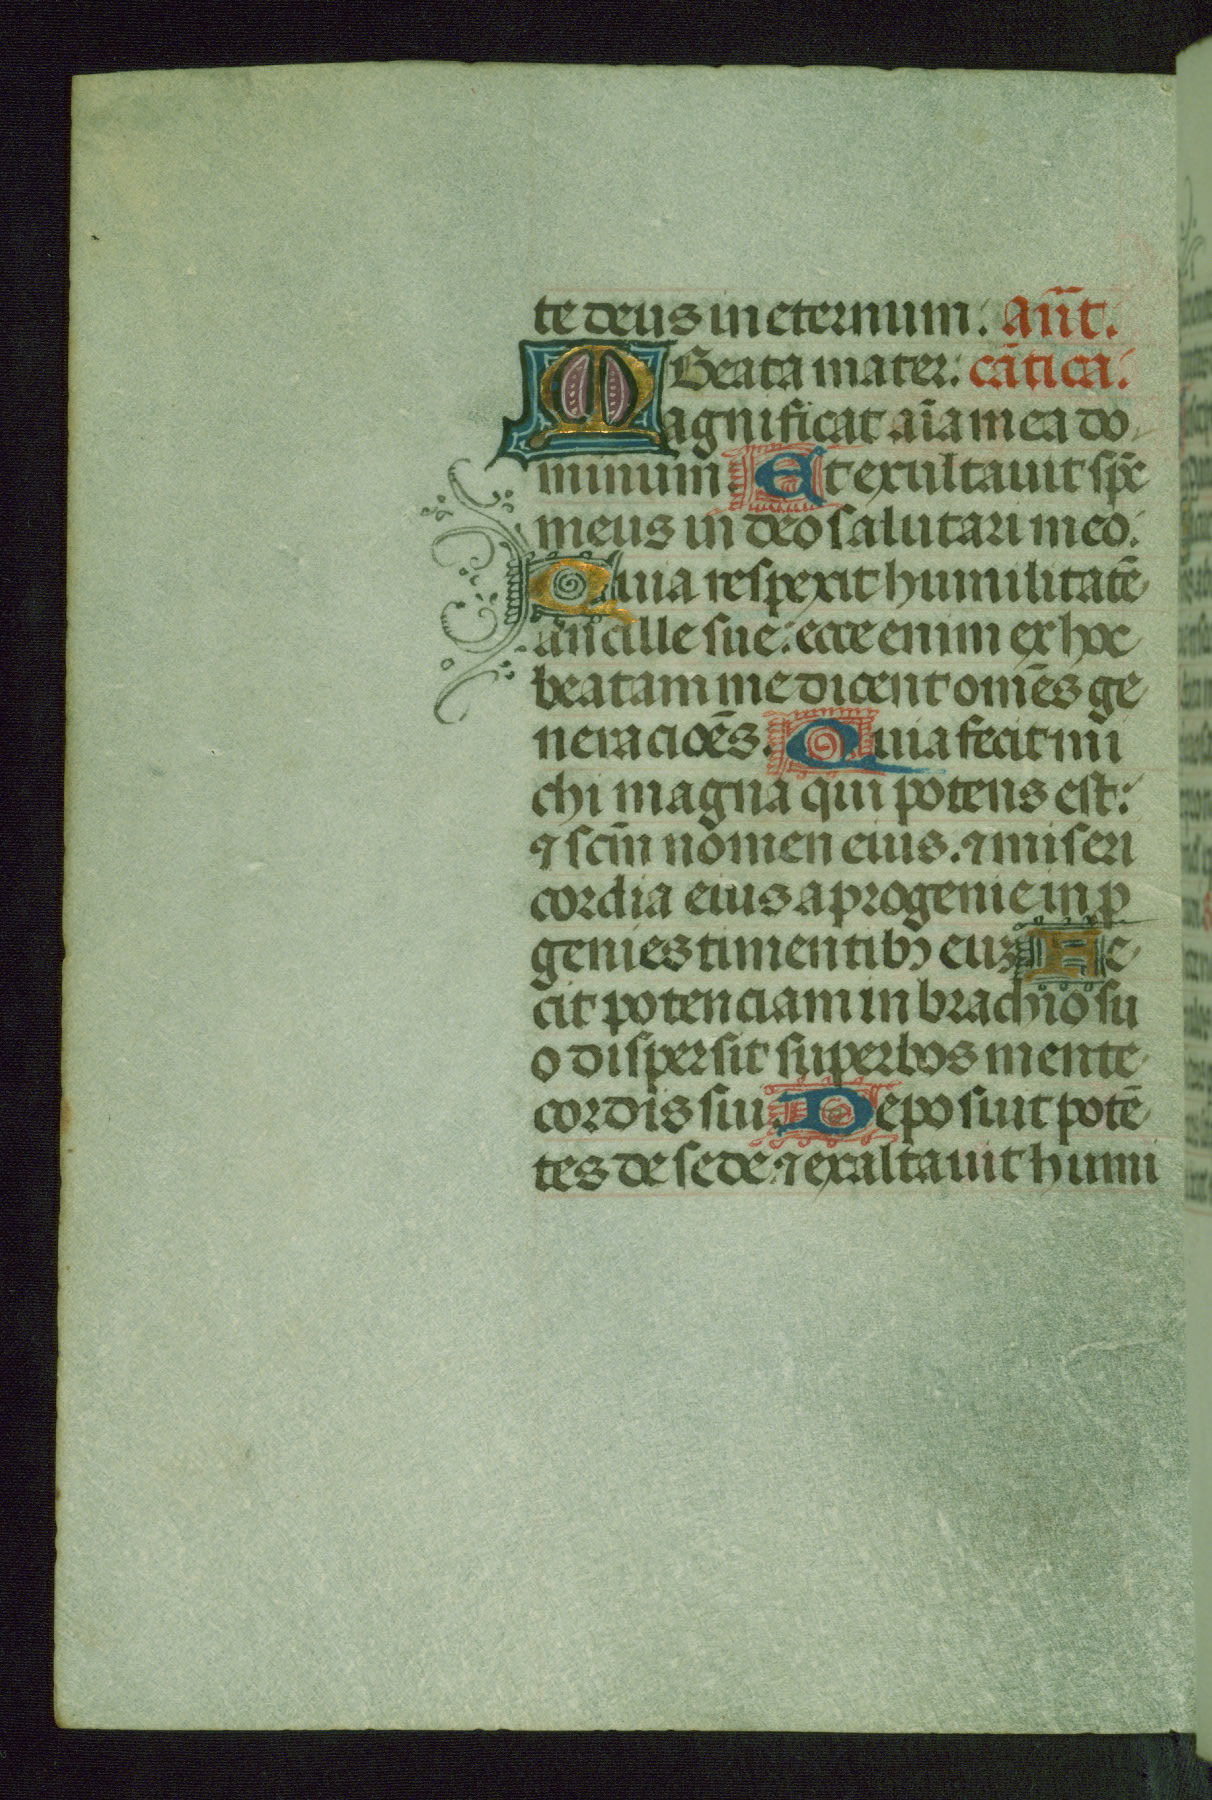 te deus in eternum. an̄t.
Beata mater. cātica.
Magnificat aīa mea do
minum. Et exultauit sp̄c
meus in deo salutari meo.
Quia respexit humilitatē
ancille sue: ecce enim ex hoc
beatam me dicent om̄es ge
neracioēs. Quia fecit mi
chi magna qui potens est:
⁊ scm̄ nomen eius. ⁊ miseri
cordia eius a progenie in ꝓ
genies timentibꝯ euꝫ He
cit potenciam in brachio su
o dispersit superbos mente
cordis sui. Deposuit potē
tes de sede ⁊ exaltauit humi